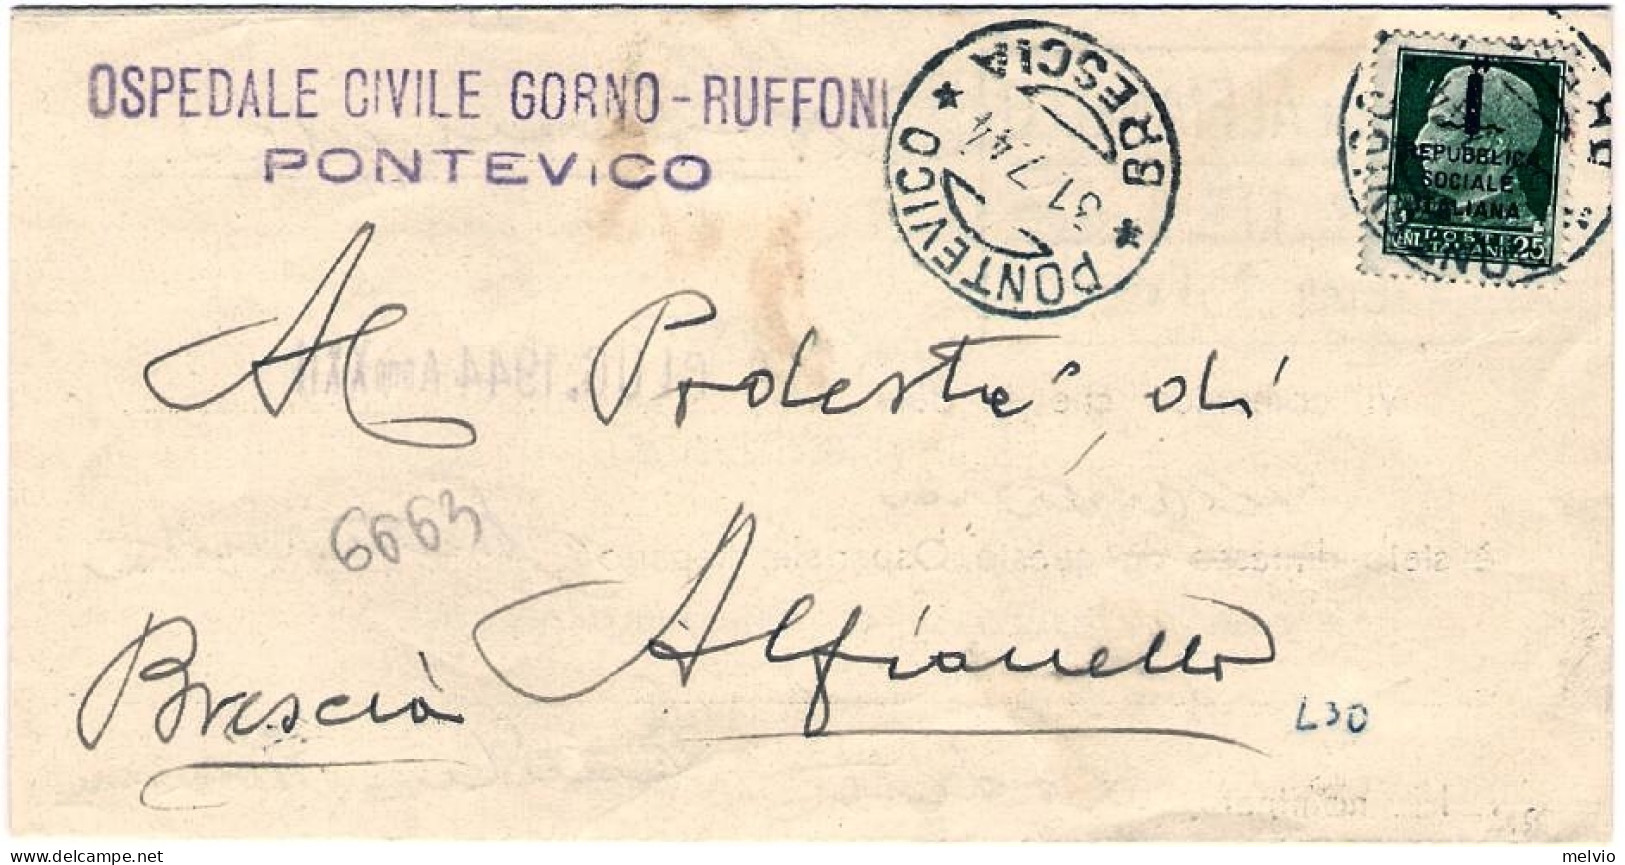 OSPEDALE CIVILE GORNO - RUFFONI
PONTEVICO
PONTEVICO * BRESCIA *
31.7.44
REPUBBLICA
SOCIALE
ITALIANA
25
Al Podestà di
6663
Alfianello
Brescia
L30
melvio